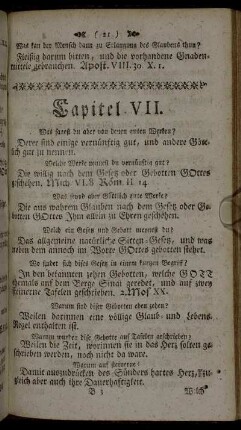 ( 21 )
Was kan der Mensch dann zu Erlangung des Glaubens thun?
Fleißig darum bitten, und die vorhandene Gnaden-
mittele gebrauchen. Apost. VIII. 30. X. 1.
Capitel VII.
Was sagst du aber von denen guten Wercken?
Derer sind einige vernünftig gut, und andere Gött-
lich gut zu nennen.
Welche Werke nennest du vernünftig gut?
Die willig nach dem Gesetz oder Gebotten GOttes
geschehen. Mich. VI. 8 Röm. II 14
Was sind aber Göttlich gute Wercke?
Die aus wahrem Glauben nach dem Gesetz oder Ge-
botten GOttes Ihm allein zu Ehren geschehen.
Welch ein Gesetz und Gebott meynest du?
Das allgemeine natürliche Sitten-Gesetz, und was
neben dem annoch im Worte GOttes gebotten stehet.
Wo findet sich dises Gesetz in einem kurzen Begriff?
In den bekannten zehen Gebotten, welche GOTT
ehemals auf dem Berge Sinai geredet, und auf zwey
steinerne Tafelen geschrieben. 2. Mos XX.
Warum sind diser Gebotten eben zehen?
Weilen darinnen eine völlige Glaub- und Lebens-
Regel enthalten ist.
Warum wurden dise Gebotte auf Tafelen geschrieben?
Weilen die Zeit, worinnen sie in das Hertz solten ge-
schrieben werden, noch nicht da ware.
Warum auf steinerne?
Damit auszudrücken des Sünders hartes Hertz, zu-
gleich aber auch ihre Dauerhaftigkeit.
B 3